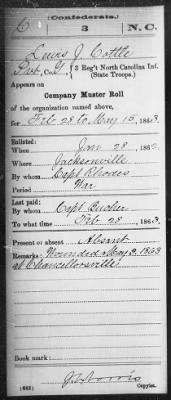 (Confederate.)
C 3 N.C.
Lewis J. Cottle
Pvt, Co. G, 3 Reg't North Carolina Inf.
(State Troops.)
Appears on
Company Muster Roll
of the organization named above,
for Feb 28 to May 15, 1863.
Enlisted:
When Jan 28, 186
Where Jacksonville
By whom Capt Rhodes
Period War
Last paid:
By whom Capt
To what time Feb 28, 1863.
Present or absent Absent
Remarks: Wounded May 3, 1863
at Chancellorsville
Book mark:
(642) Copyist.